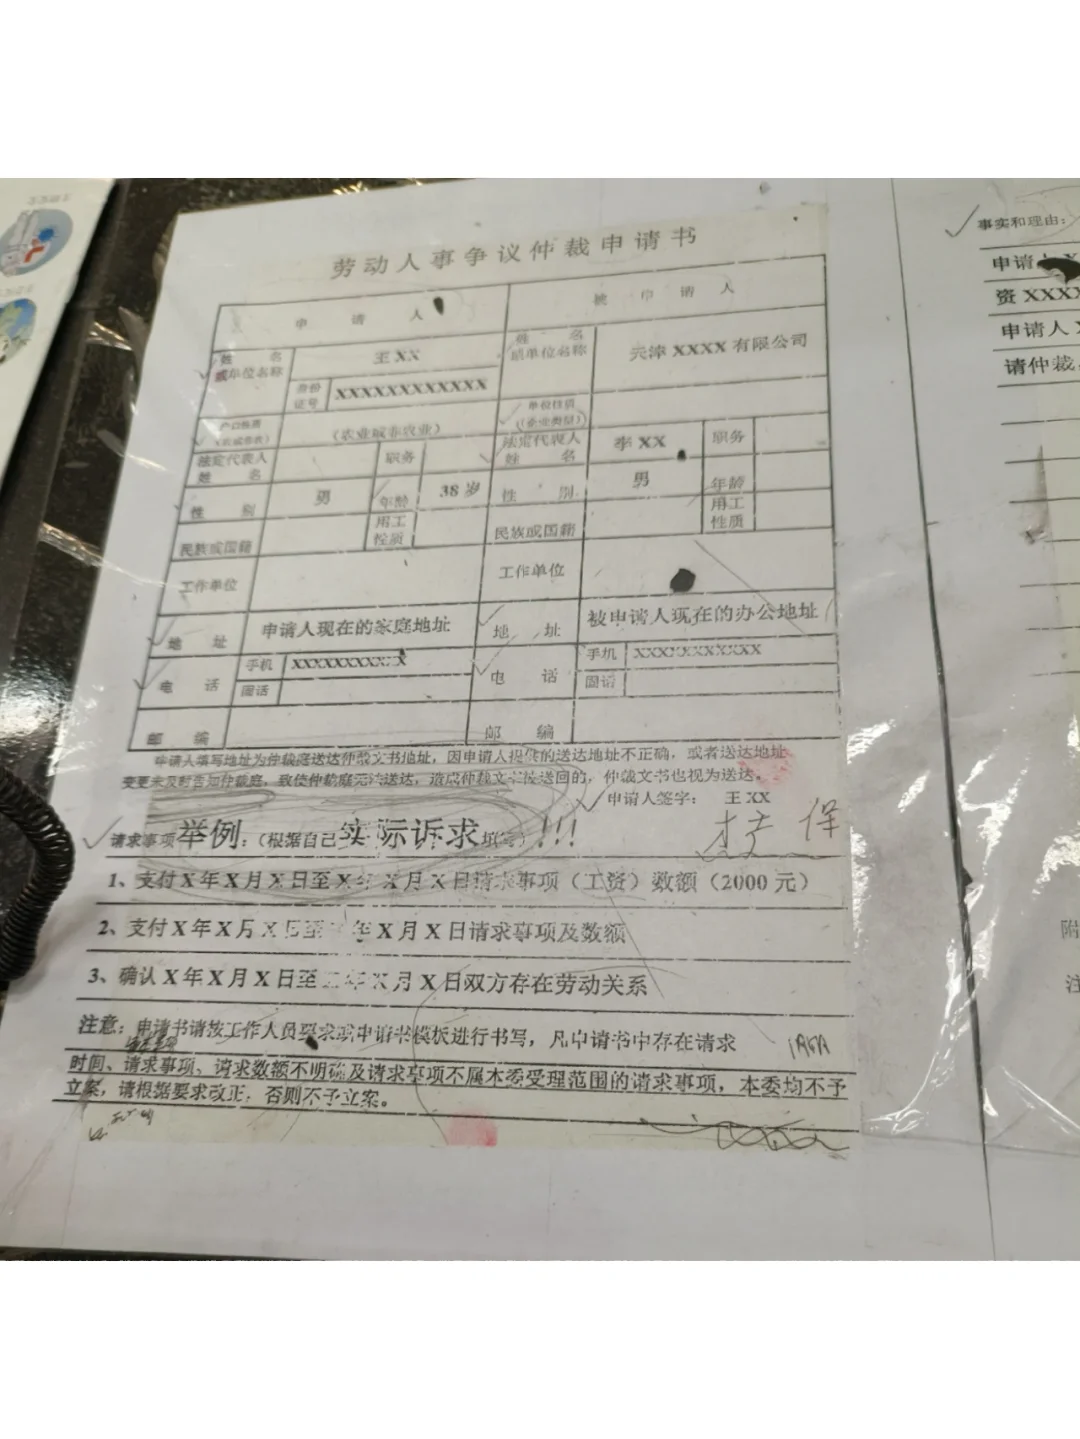 劳动人事争议仲裁申请书
申请人
被申请人
姓名或单位名称
王XX
姓名或单位名称
天津XXXX有限公司
身份证号
XXXXXXXXXXXX
户口性质
(农业或非农业)
单位性质
(企业类型)
法定代表人姓名
职务
法定代表人姓名
李XX
职务
性别
男
年龄
38岁
性别
男
年龄
民族或国籍
用工性质
民族或国籍
用工性质
工作单位
工作单位
地址
申请人现在的家庭地址
地址
被申请人现在的办公地址
电话
手机
XXXXXXXXXXX
固话
电话
手机
XXXXXXXXXXXX
固话
邮编
邮编
申请人填写地址为仲裁庭送达仲裁文书地址，因申请人提供的送达地址不正确，或者送达地址
变更未及时告知仲裁庭，致使仲裁庭无法送达，造成仲裁文书被送回的，仲裁文书也视为送达。
申请人签字： 王XX
请求事项举例：(根据自己实际诉求填写)!!!
保
1、支付X年X月X日至X年X月X日请求事项（工资）数额（2000元）
2、支付X年X月X日至X年X月X日请求事项及数额
3、确认X年X月X日至X年X月X日双方存在劳动关系
注意：申请书请按工作人员要求或申请书模板进行书写，凡申请书中存在请求
时间、请求事项、请求数额不明确及请求事项不属本委受理范围的请求事项，本委均不予
立案，请根据要求改正，否则不予立案。
事实和理由：
申请人X
资XXXX
申请人X
请仲裁
附
注